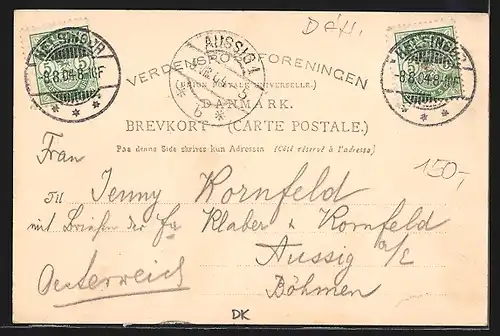 Dän.
HELSINGØR
8.8.04.8-9F
5
AUSSIG 1
HELSINGØR
8.8.04.8-9F
VERDENSPOSTFORENINGEN
(UNION POSTALE UNIVERSELLE.)
DANMARK.
BREVKORT – (CARTE POSTALE.)
Paa denne Side skrives kun Adressen (Côté réservé à l'adresse.)
150,-
Frau
Til Jenny Kornfeld
mit Briefen der Fa Klaber & Kornfeld
Aussig a/E
Oesterreich
Böhmen
DK